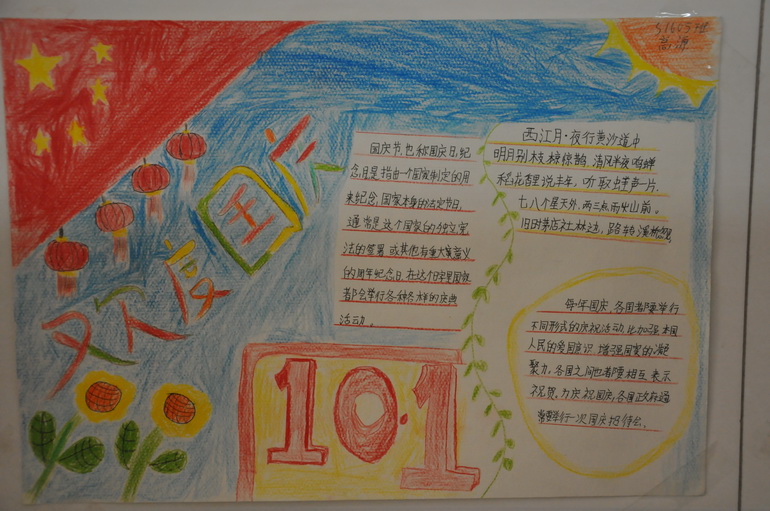 S1605班
高源
欢度国庆
国庆节也称国庆日,纪
念日是指由一个国家制定的用
来纪念国家本身的法定节日。
通常是这个国家的独立、宪
法的签署、或其他有重大意义
的周年纪念日。在这个日子里国家
都会举行各种各样的庆典
活动。
西江月·夜行黄沙道中
明月别枝惊鹊,清风半夜鸣蝉
稻花香里说丰年,听取蛙声一片,
七八个星天外,两三点雨山前。
旧时茅店社林边,路转溪桥忽见
每年国庆,各国都要举行
不同形式的庆祝活动,以加强本国
人民的爱国意识,增强国家的凝
聚力,各国之间也都要相互表示
祝贺,为庆祝国庆,各国政府通
常要举行一次国庆招待会。
10.1